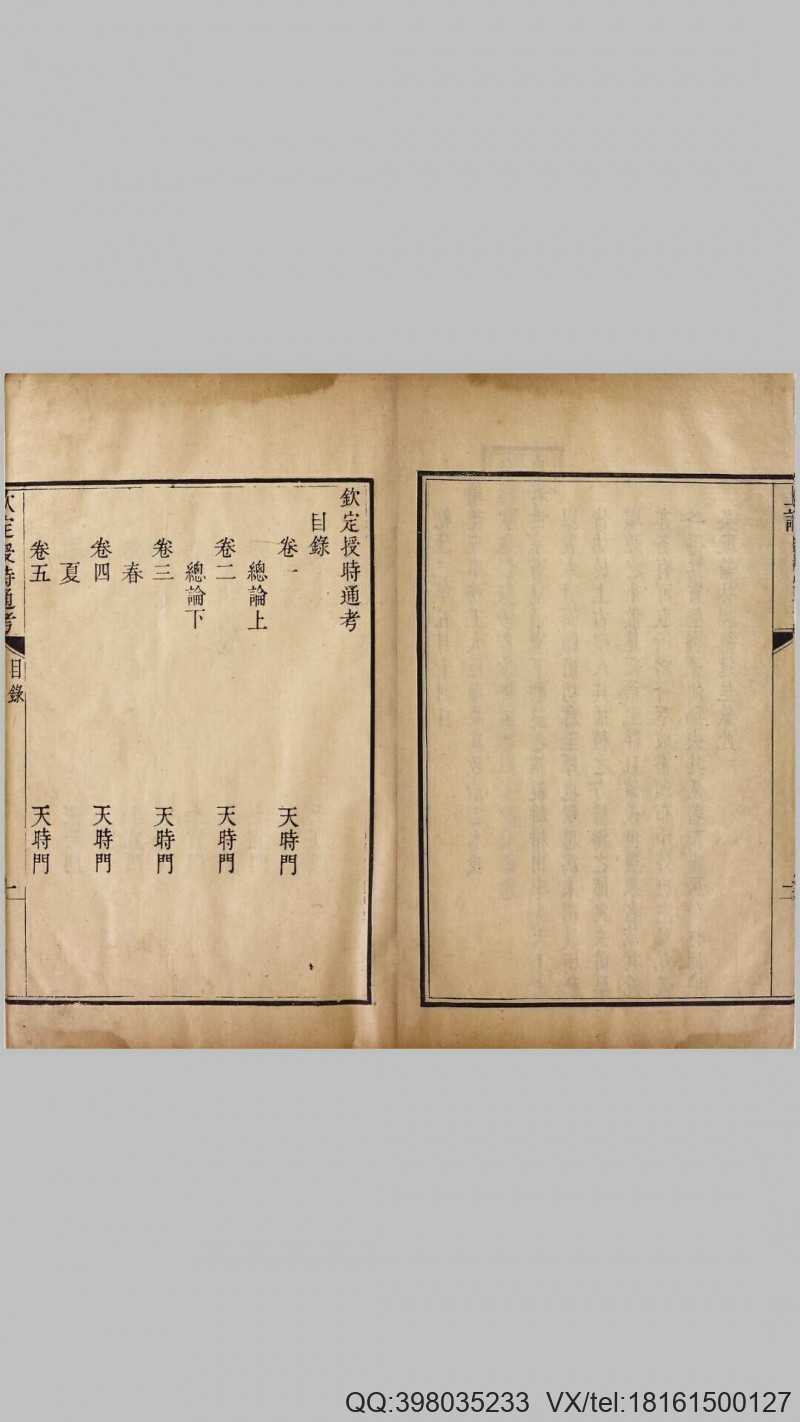 欽定授時通考
目錄
卷一 天時門
總論上
卷二 天時門
總論下
卷三 天時門
春
卷四 天時門
夏
卷五 天時門
欽定授時通考 目錄 一
QQ:398035233 VX/tel:18161500127